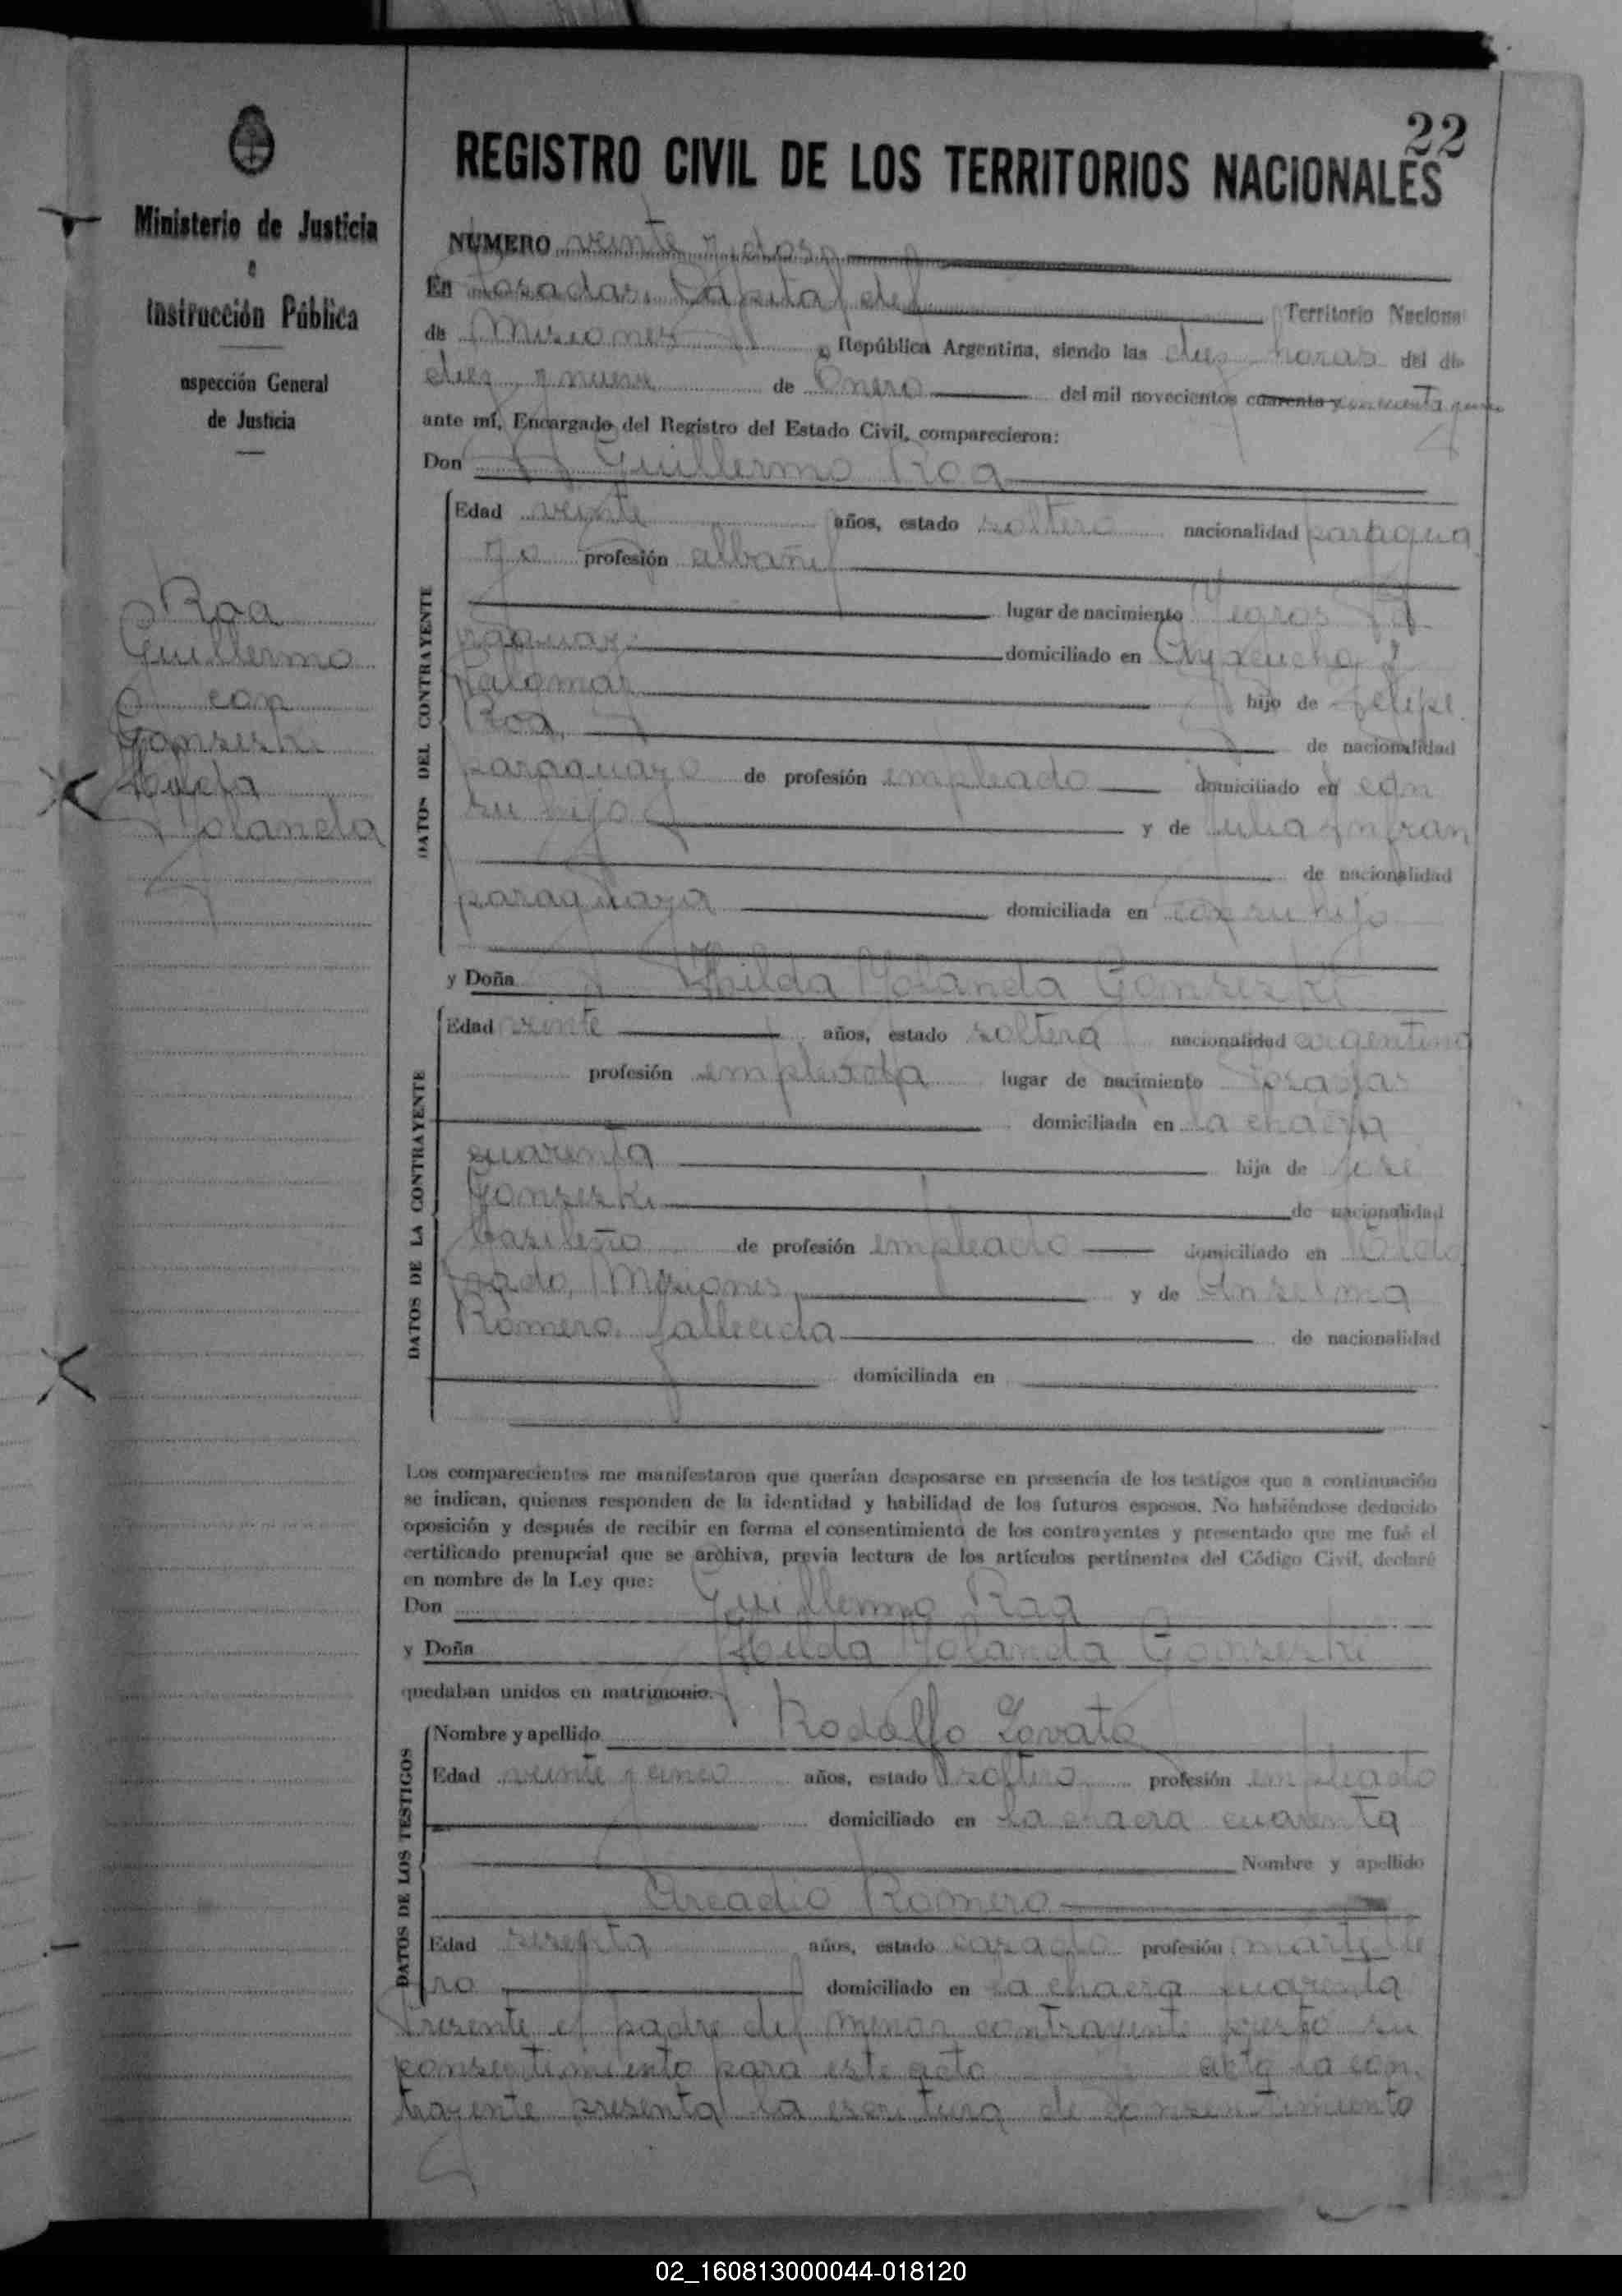 22
REGISTRO CIVIL DE LOS TERRITORIOS NACIONALES
Ministerio de Justicia
e
Instrucción Pública
nspección General
de Justicia
Roa
Guillermo
con
Gonseski
Hilda
Yolanda
NUMERO veinte y dos
En Posadas, Capital del Territorio Naciona
de Misiones República Argentina, siendo las diez horas del día
diez y nueve de Enero del mil novecientos cuarenta y cincuenta
ante mí, Encargado del Registro del Estado Civil, comparecieron:
Don Guillermo Roa
DATOS DEL CONTRAYENTE
Edad veinte años, estado soltero nacionalidad paragua
yo profesión albañil
lugar de nacimiento Yegros Pa
raguay domiciliado en Ayacucho y
Palomar hijo de Felipe
Roa, de nacionalidad
paraguayo de profesión empleado domiciliado en con
su hijo y de Julia Infran
de nacionalidad
paraguaya domiciliada en con su hijo
y Doña Hilda Yolanda Gonseski
DATOS DE LA CONTRAYENTE
Edad veinte años, estado soltera nacionalidad argentina
profesión empleada lugar de nacimiento Posadas
domiciliada en la chacra
cuarenta hija de José
Gonseski de nacionalidad
brasileño de profesión empleado domiciliado en Eldo
rado, Misiones y de Anselma
Romero, fallecida de nacionalidad
domiciliada en
Los comparecientes me manifestaron que querían desposarse en presencia de los testigos que a continuación
se indican, quienes responden de la identidad y habilidad de los futuros esposos. No habiéndose deducido
oposición y después de recibir en forma el consentimiento de los contrayentes y presentado que me fué el
certificado prenupcial que se archiva, previa lectura de los artículos pertinentes del Código Civil, declaré
en nombre de la Ley que:
Don Guillermo Roa
y Doña Hilda Yolanda Gonseski
quedaban unidos en matrimonio.
DATOS DE LOS TESTIGOS
Nombre y apellido Rodolfo Lovato
Edad veinte y cinco años, estado soltero profesión empleado
domiciliado en la chacra cuarenta
Nombre y apellido
Arcadio Romero
Edad sesenta años, estado casado profesión martille
ro domiciliado en la chacra cuarenta
Presente el padre del menor contrayente prestó su
consentimiento para este acto la con
trayente presenta la escritura de consentimiento
02_160813000044-018120